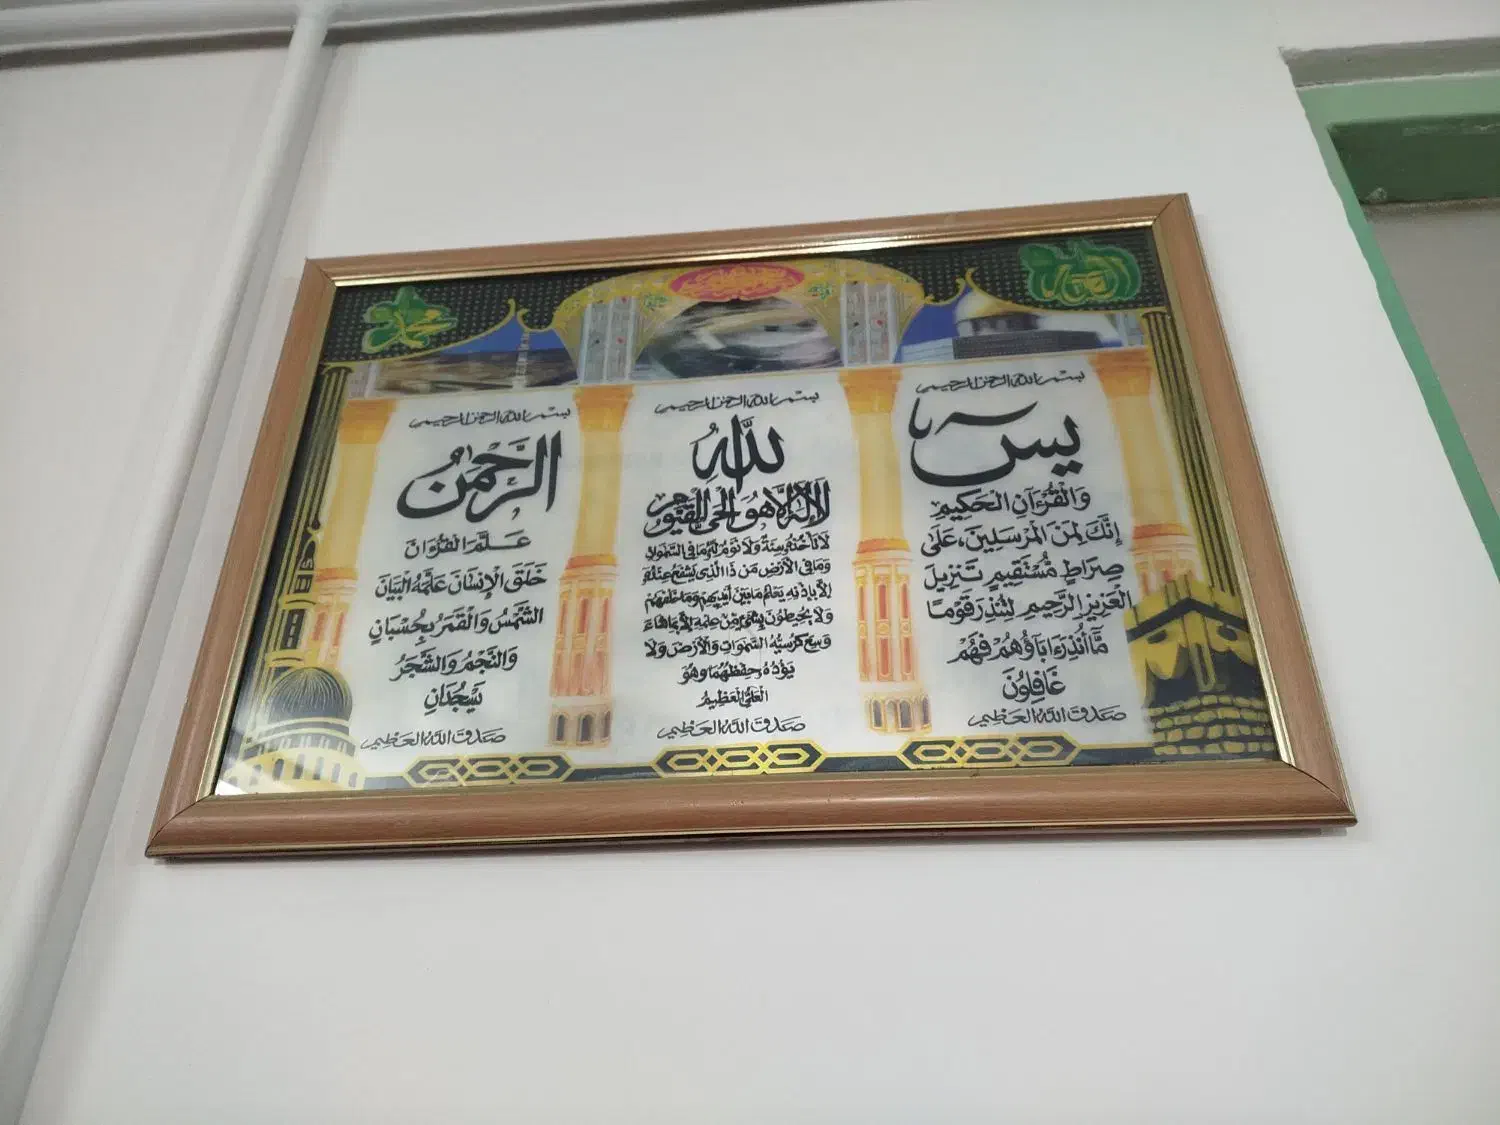 الله
محمد
بسم الله الرحمن الرحيم
يسٓ
وَالْقُرْءَانِ الْحَكِيمِ
إِنَّكَ لَمِنَ الْمُرْسَلِينَ، عَلَى
صِرَاطٍ مُّسْتَقِيمٍ تَنزِيلَ
الْعَزِيزِ الرَّحِيمِ لِتُنذِرَ قَوْمًا
مَّا أُنذِرَ ءَابَآؤُهُمْ فَهُمْ
غَافِلُونَ
صدق الله العظيم
بسم الله الرحمن الرحيم
اللَّهُ
لَا إِلَهَ إِلَّا هُوَ الْحَيُّ الْقَيُّومُ
لَا تَأْخُذُهُ سِنَةٌ وَلَا نَوْمٌ لَهُ مَا فِي السَّمَوَاتِ
وَمَا فِي الْأَرْضِ مَن ذَا الَّذِي يَشْفَعُ عِندَهُ
إِلَّا بِإِذْنِهِ يَعْلَمُ مَا بَيْنَ أَيْدِيهِمْ وَمَا خَلْفَهُمْ
وَلَا يُحِيطُونَ بِشَيْءٍ مِّنْ عِلْمِهِ إِلَّا بِمَا شَاءَ
وَسِعَ كُرْسِيُّهُ السَّمَوَاتِ وَالْأَرْضَ وَلَا
يَؤُدُهُ حِفْظُهُمَا وَهُوَ
الْعَلِيُّ الْعَظِيمُ
صدق الله العظيم
بسم الله الرحمن الرحيم
الرَّحْمَنُ
عَلَّمَ الْقُرْءَانَ
خَلَقَ الْإِنْسَانَ عَلَّمَهُ الْبَيَانَ
الشَّمْسُ وَالْقَمَرُ بِحُسْبَانٍ
وَالنَّجْمُ وَالشَّجَرُ
يَسْجُدَانِ
صدق الله العظيم